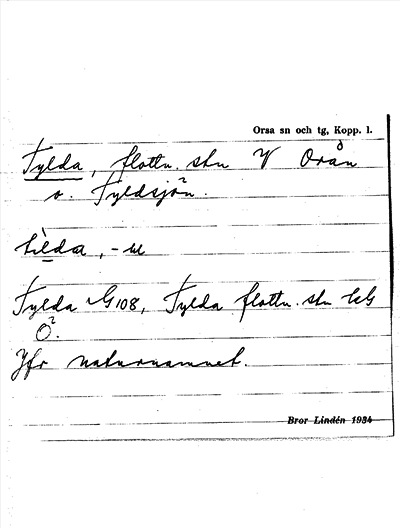 Orsa sn och tg, Kopp. l.
Tylda, flottn. stn V Oreån
o. Tyldsjön.
tìlda, -
Tylda G 108, Tylda flottn. stn
Ö².
Jfr naturnamnet.
Bror Lindén 1934